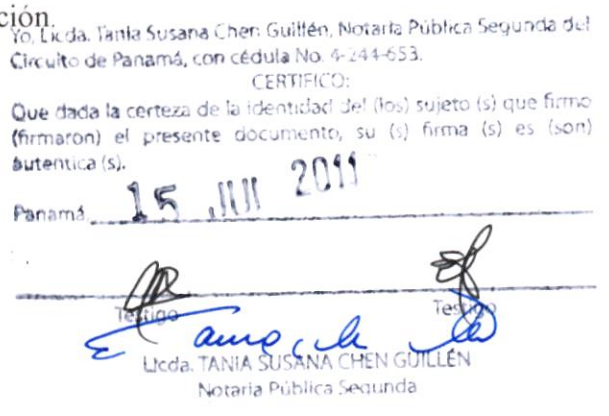 ción.
Yo, Licda. Tania Susana Chen Guillén, Notaria Pública Segunda del
Circuito de Panamá, con cédula No. 4-244-653.
CERTIFICO:
Que dada la certeza de la identidad del (los) sujeto (s) que firmo
(firmaron) el presente documento, su (s) firma (s) es (son)
autentica (s).
Panamá, 15 JUL 2011
Testigo Testigo
Licda. TANIA SUSANA CHEN GUILLÉN
Notaria Pública Segunda